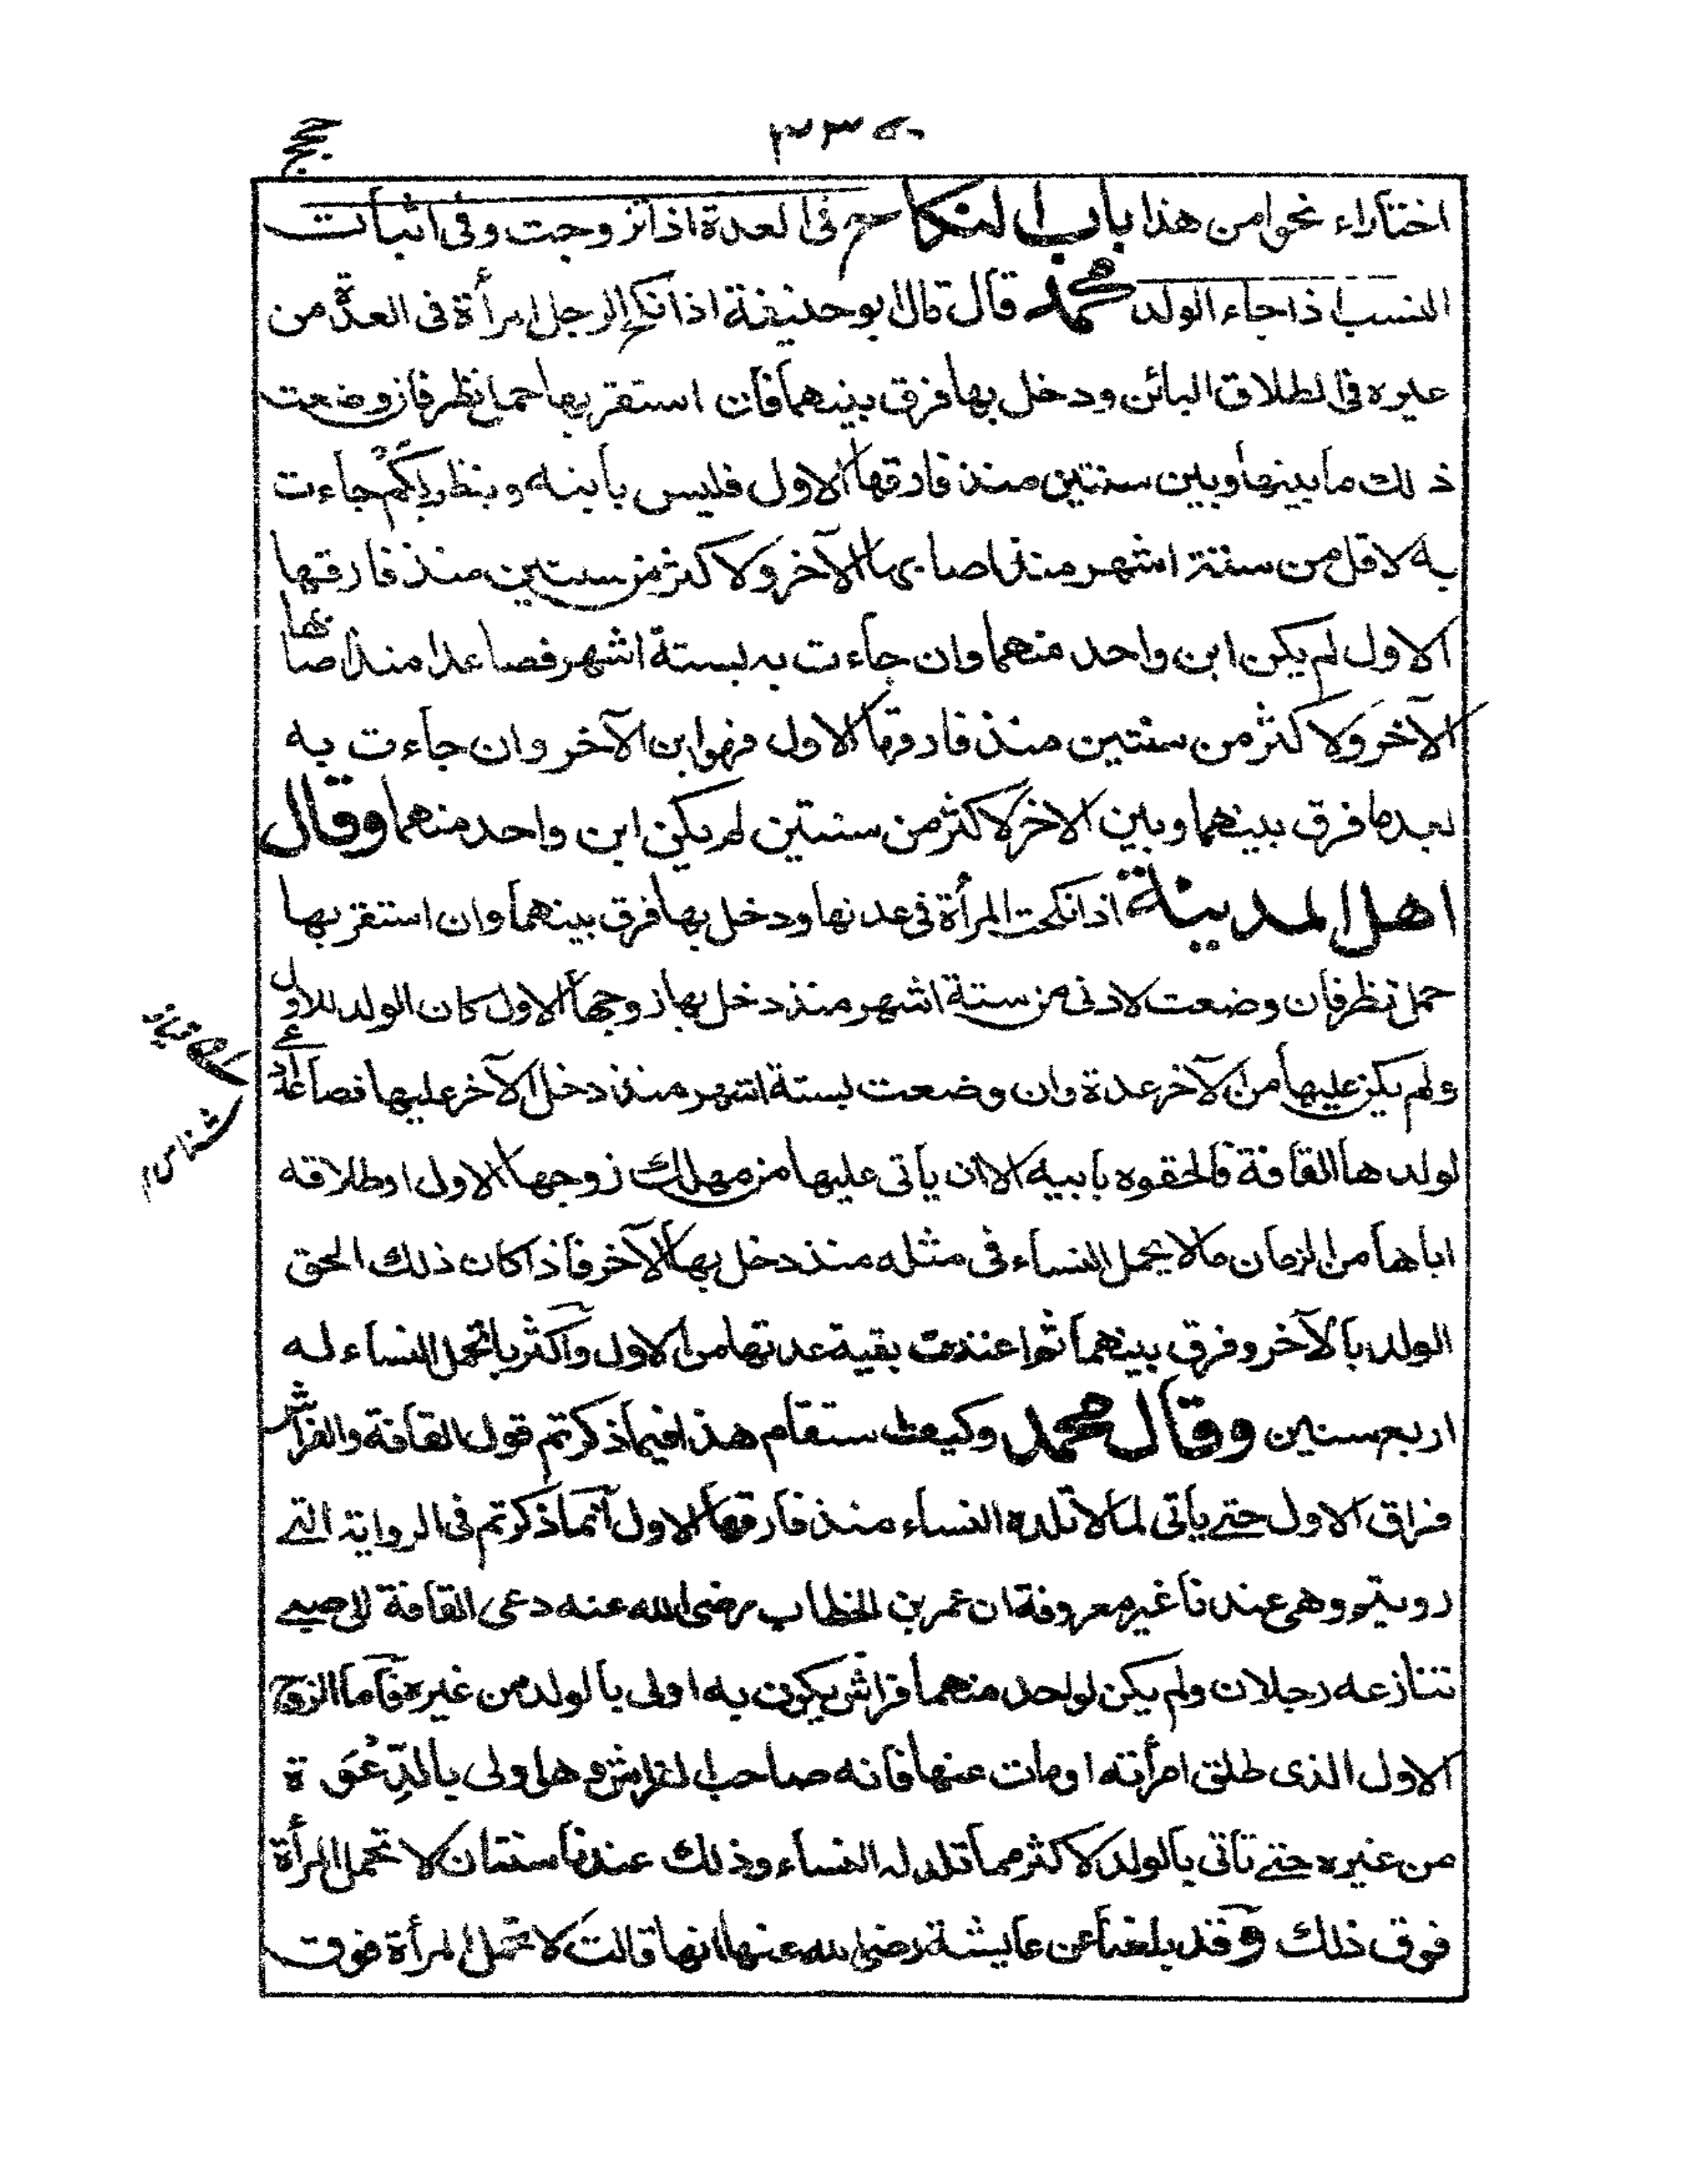 ٣٣٥
حجج
اختاراء نحوا من هذا باب النكاح في العدة اذا تزوجت وفي اثبات
النسب اذا جاء الولد محمد قال قال ابو حنيفة اذا نكح الرجل امرأة في العدة من
غيره في الطلاق البائن ودخل بها فرق بينهما فان استقر بها حمل نظر فان وضعت
ذلك ما بينها وبين سنتين منذ فارقها الاول فليس بابنه وينظر جاءت
به لاقل من ستة اشهر منذ اصابها الآخر ولاكثر من سنتين منذ فارقها
الاول لم يكن ابن واحد منهما وان جاءت به لستة اشهر فصاعدا منذ اصابها
الآخر ولاكثر من سنتين منذ فارقها الاول فهو ابن الآخر وان جاءت به
بعد ما فرق بينهما وبين الاخر لاكثر من سنتين لم يكن ابن واحد منهما وقال
اهل المدينة اذا نكحت المرأة في عدتها ودخل بها فرق بينهما وان استقر بها
حمل نظر فان وضعت لادنى من ستة اشهر منذ دخل بها زوجها الاول كان الولد للاول
ولم يكن عليها من الآخر عدة وان وضعت لستة اشهر منذ دخل الآخر عليها فصاعدا دعى
لولدها القافة فالحقوه بابيه الا ان يأتى عليها من مهلك زوجها الاول او طلاقه
اياها من الزمان ما لا يحمل النساء في مثله منذ دخل بها الآخر فاذا كان ذلك الحق
الولد بالآخر وفرق بينهما ثم اعتدت بقية عدتها من الاول واكثر ما تحمل النساء له
اربع سنين وقال محمد وكيف استقام هذا فيما ذكرتم قول القافة والفراش
فراق الاول حتى يأتى لما لا تلده النساء منذ فارقها الاول انما ذكرتم في الرواية التى
رويتم وهى عندنا غير معروفة ان عمر بن الخطاب رضى الله عنه دعى القافة الى صبى
تنازعه رجلان ولم يكن لواحد منهما فراش يكون به اولى بالولد من غيره فاما الزوج
الاول الذى طلق امرأته او مات عنها فانه صاحب الفراش وهو اولى بالدِّعْوَة
من غيره حتى تأتى بالولد لاكثر مما تلد له النساء وذلك عندنا سنتان لا تحمل المرأة
فوق ذلك وقد بلغنا عن عايشة رضى الله عنها انها قالت لا تحمل المرأة فوق